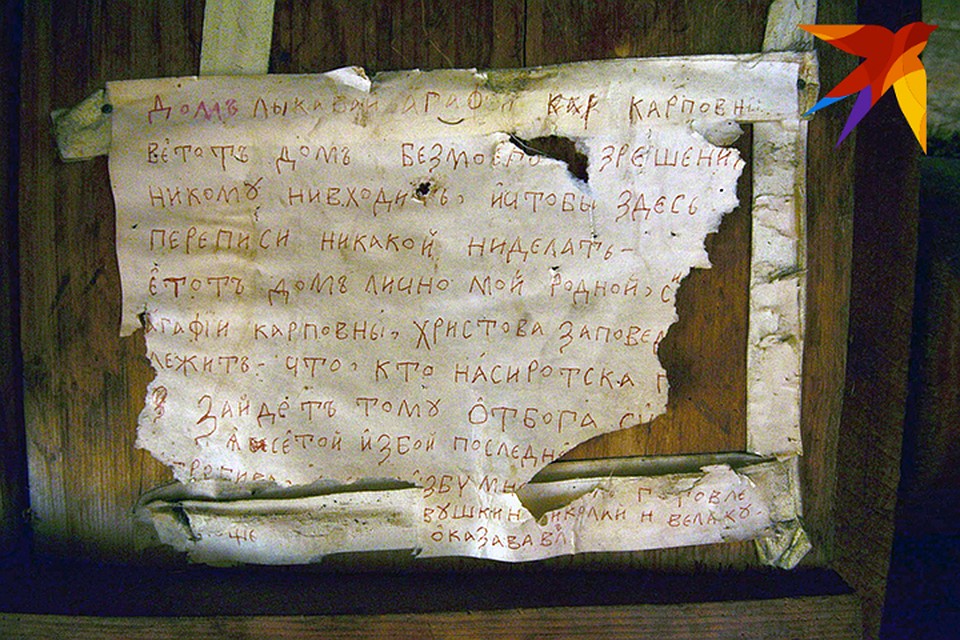 Домъ лыкавай агафи карповны
вётотъ домъ безмоево зрешени
никомꙋ нивходить, ӥчтобы здесь
переписи никакой ниделать-
ётотъ домъ лично мой родной,
Агафїи карповны, христова запове
лежитъ- что, кто на́сиротска
Зайдётъ томꙋ о̂тбога
ӥзбой последн
ӥзбꙋ
готовле
николай н
оказава